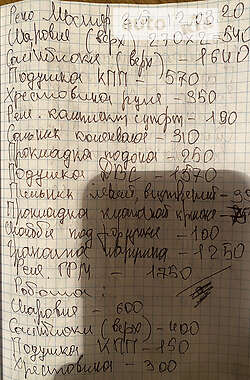 Шаровые (верх) 270х2-540
Сайлентблоки (верх) - 1640
Подушка КПП - 570
Крестовина руля - 350
Рем. комплект суппорт - 190
Сальник коленвала - 310
Прокладка поддона - 250
Подушка ДВС - 1570
Пыльник левый, внутренний -
Прокладка клапанной крышки -
Скобы под пружины - 100
Граната наружная - 1250
Рем. ГРМ - 1750
Работа:
Шаровые - 600
Сайлентблоки (верх) - 400
Подушка КПП - 150
Крестовина - 300